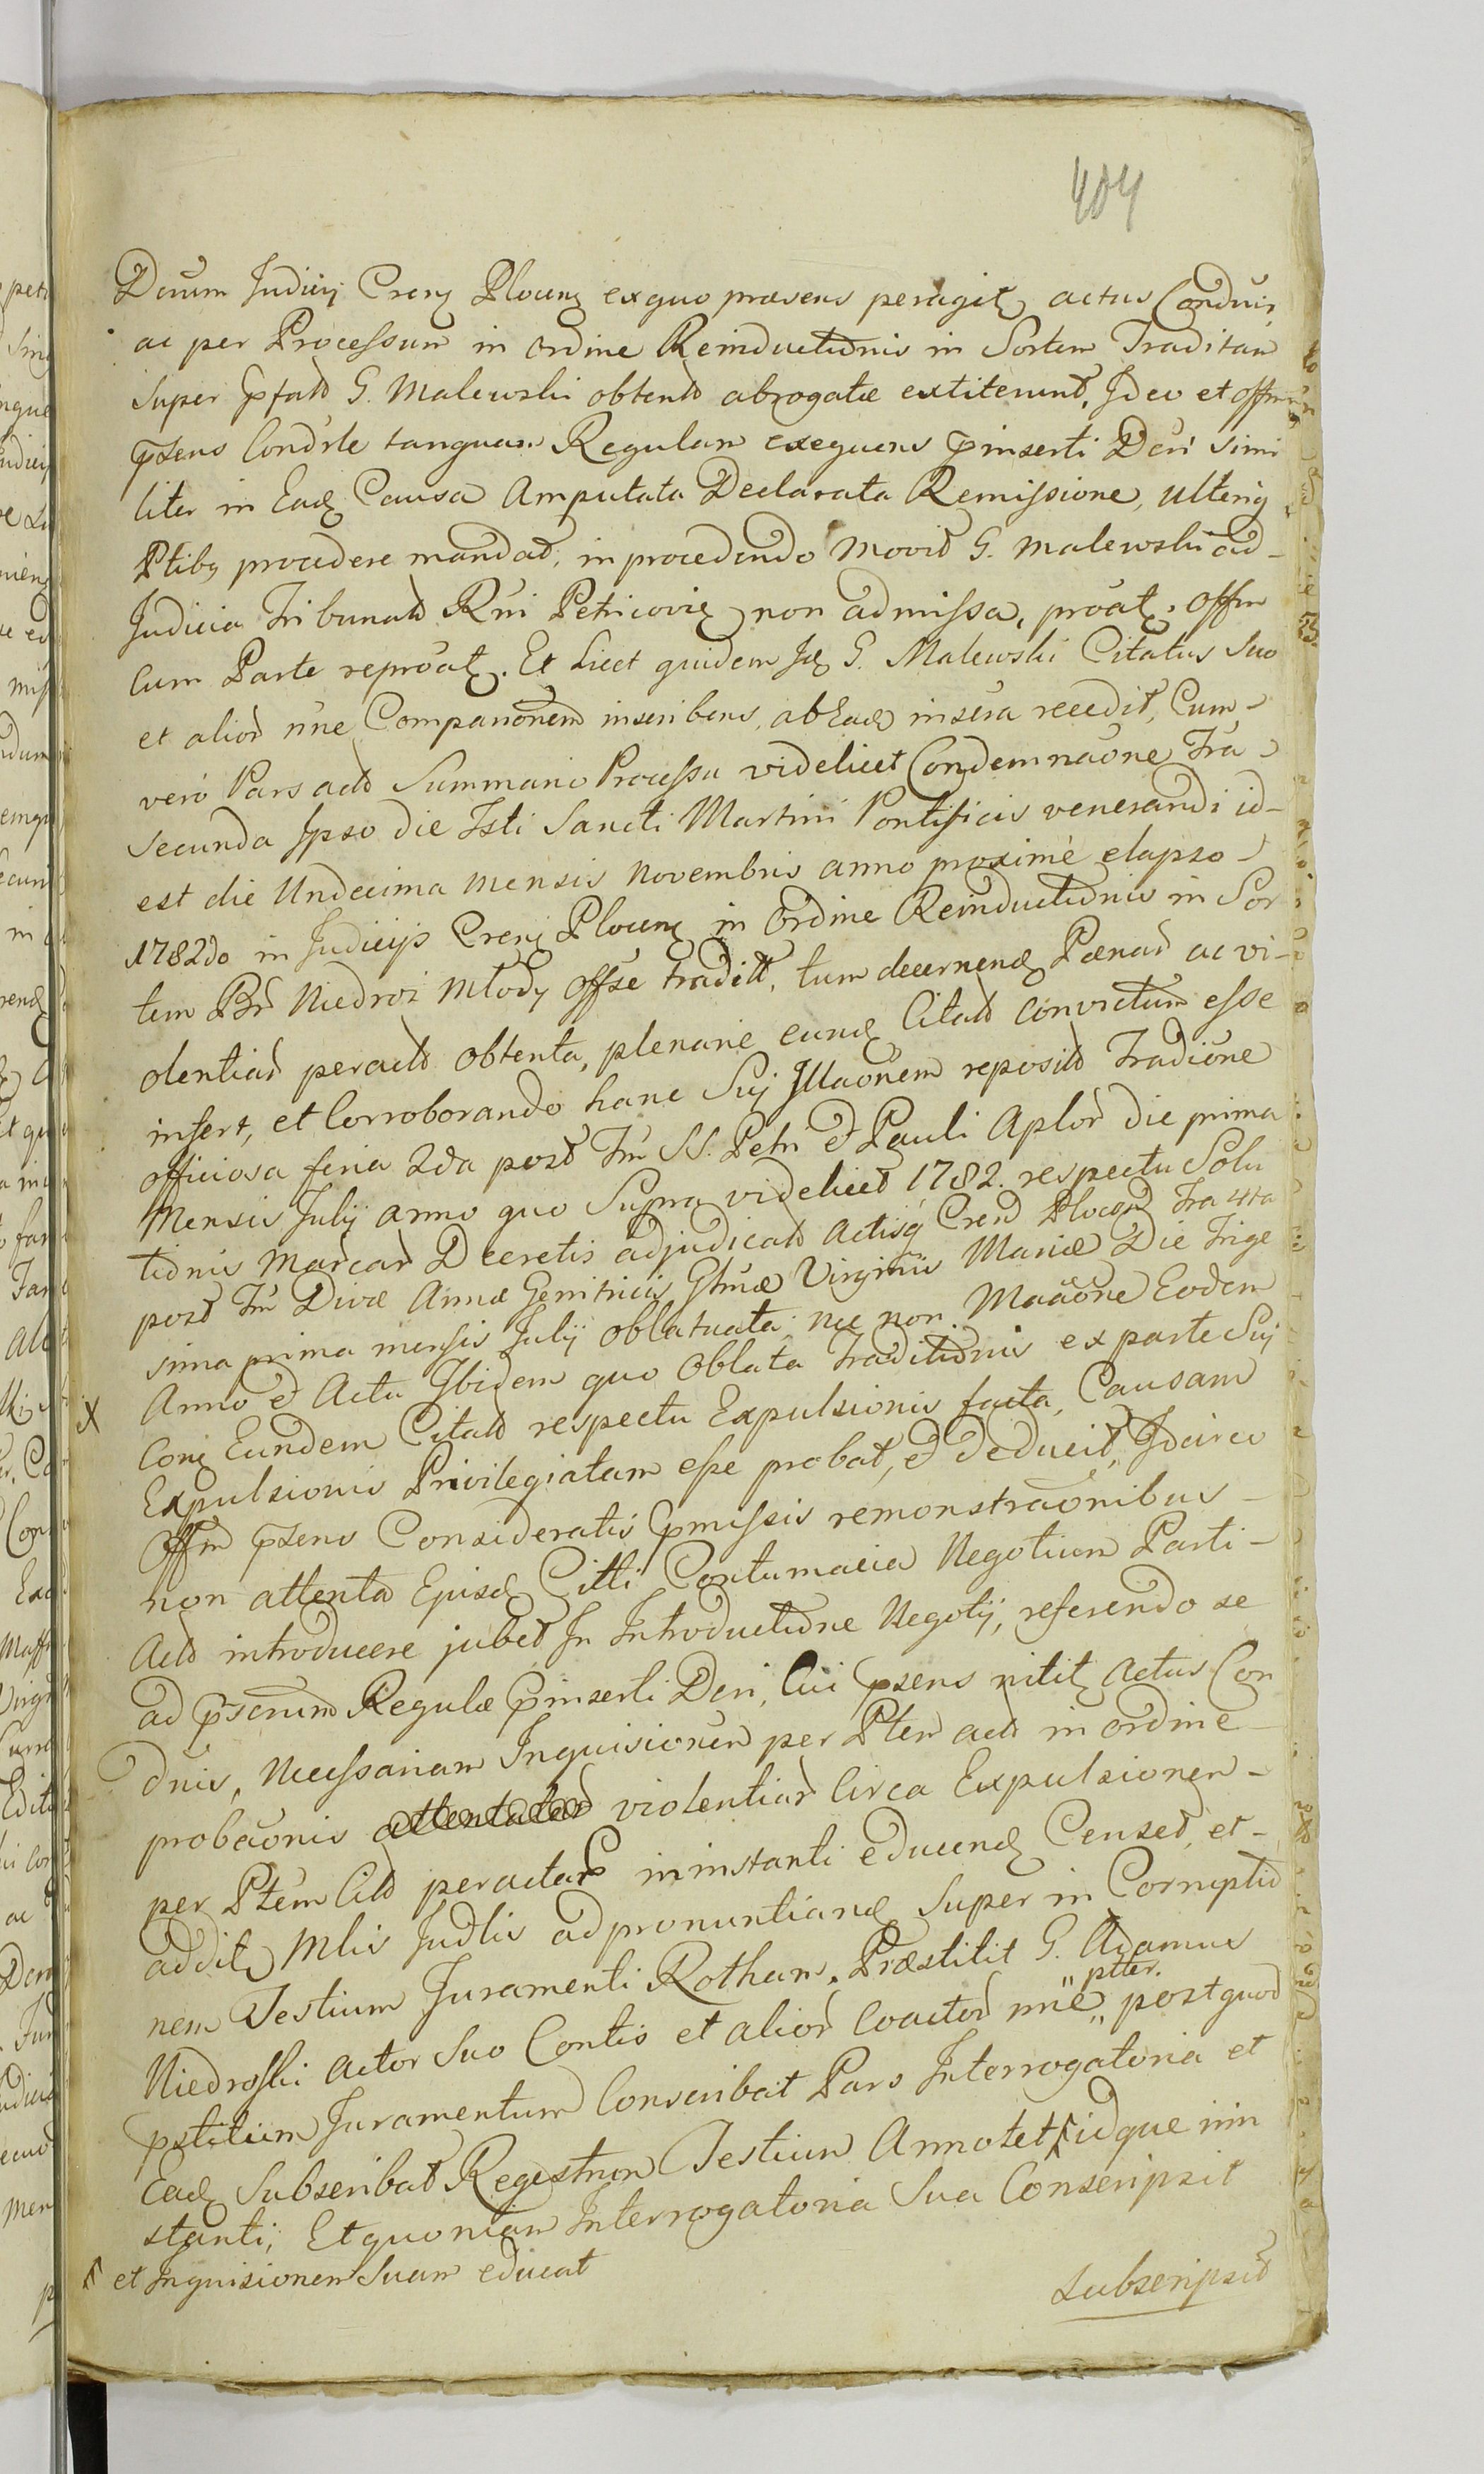 404
Dcrum Judicij Crenę Plocenę ex quo praesens peragitę actus Condnis
ac per Processum in ordine Reinductionis in Sortem Traditam
super ppfato G. Malewski obtento abrogatae extiterunt, Ideo et Offm
ppsens Condrle tanquam Regulam exequens ppinserti Dcri simi
liter in Eadę Causa Amputata Declarata Remissione, ulterię
Ptibę procedere mandat, in procedendo movit G. Malewski ad-
Judicia Tribunat Rni Petricovię non admissa, proatę, Offm
cum Parte reproatę. Et Licet quidem Idę G. Malewski Citatus Suo
et alior nne Comparitionem inscribens, ab Eadę in sera recedit, Cum-
vero Pars acto Summario Processu videlicet Condemnaone Fra
secunda Ipso die Fsti Sancti Martini Pontificis venerandi id-
est die Undecima mensis Novembris anno proxime elapso
1782do in Judicijs Crenę Plocenę in Ordine Reinductionis in Sor
tem Br Niedroz Młody Offse tradit, tum decernendę Paenar ac vi-
olentiar peracto obtenta, plenarie eundę Citat convictum esse
infert, et Corroborando hanc Suj Illaonem reposito Tradione
officiosa feria 2da post Fm SS. Petri et Pauli Aplor die prima
Mensis Julij anno quo Supra videlicet 1782. respectu Solu
tionis Marcar Decretis adjudicato Actisq Cren Plocen Fra 4ta
post Fm Divae Annae Genitricis Gtmae Virginis Mariae Die Trige
sima prima mensis Julij oblatuata, nec non Maaone Eodem
x Anno et Actu Ibidem quo Oblata Traditionis ex parte Suj
Conę Eundem Citato respectu Expulsionis facta, Causam
Expulsionis Privilegiatam esse probat, et deducit, Idcirco
Offm ppsens Consideratis ppmissis remonstraonibus-
non attenta Episdę Citti Contumacia Negotium Parti-
Acto introducere jubet In Introductione Negotij, referendo se
ad ppscrium Regulae ppinserti Dcri, Cui ppsens nititę Actus Con
dnis, Necessariam Inquisicionem per Ptem acto in ordine
probaonis violentiar Circa Expulsionem-
per Ptem Cito peractar in instanti educendę Censet, et-
additę Mlis Judlis ad pronuntiandę Super in Corruptio
nem Testium Juramenti Rotham, Praestitit G. Adamus
Niedroski Actor Suo Contis et alior Coactor nne ptter. postquod
pstitum Juramentum Conscribat Pars Interrogatoria et
Eadę Subscribat Regestrum Testium Annotet idque inin
stanti; Et quoniam Interrogatoria Sua Conscripsit
et Inquisionem Suam educat
Subscripsit